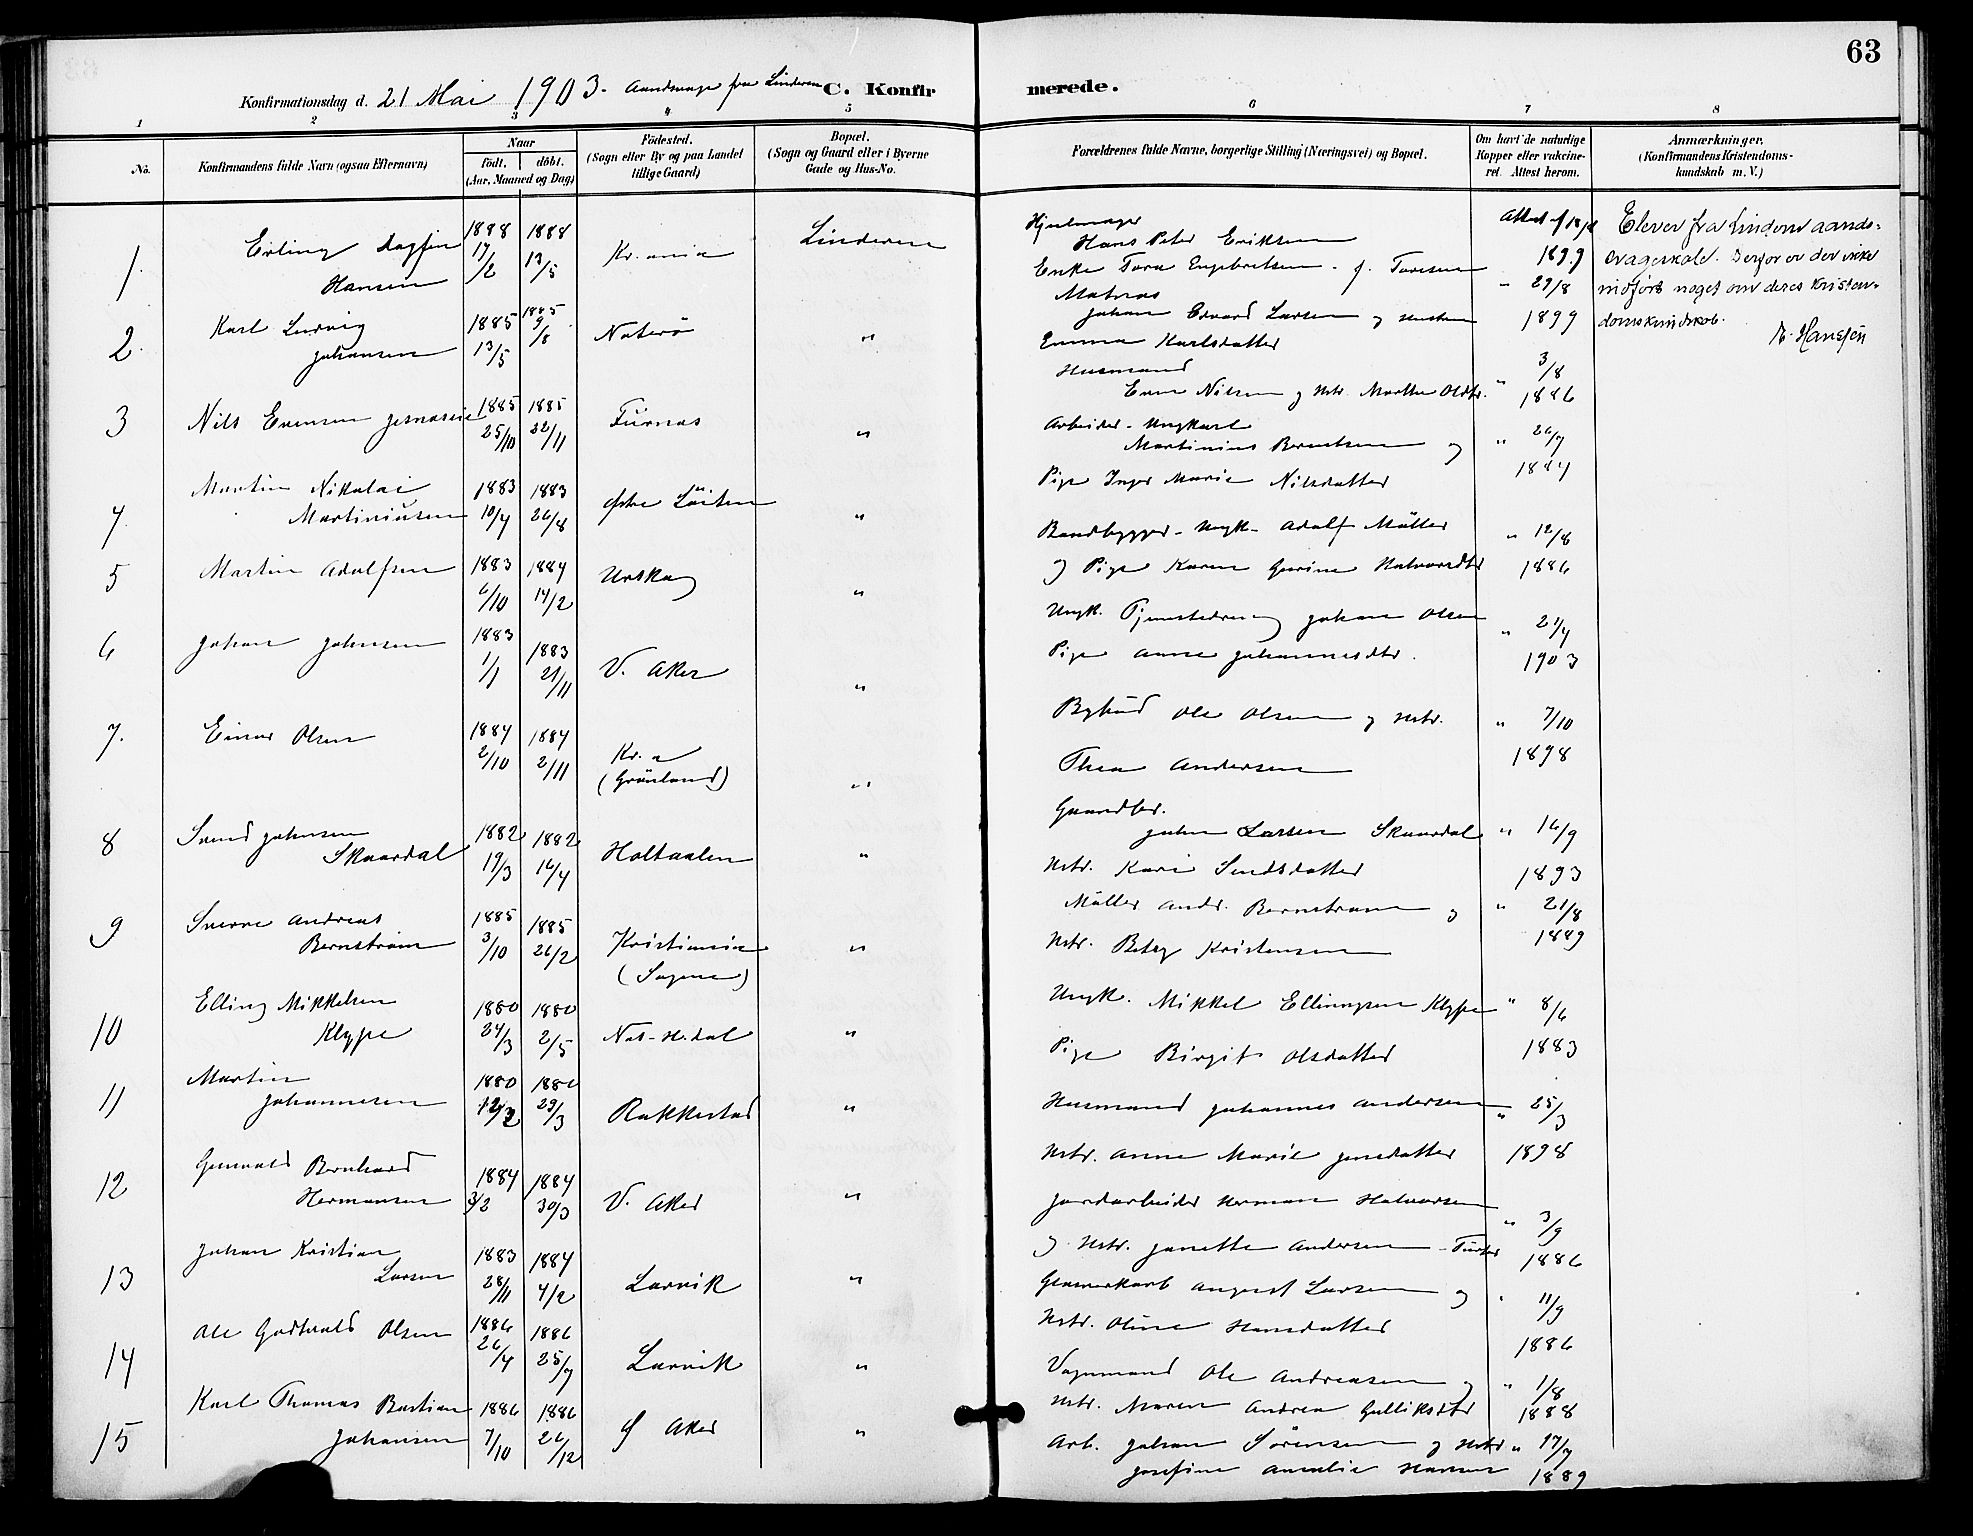 63
Konfirmationsdag d. 21 Mai 1903. Aandsvage fra Linderen C. Konfirmerede.
1 2 3 4 5 6 7 8
No.
Konfirmandens fulde Navn (ogsaa Efternavn)
Naar
födt. döbt.
(Aar, Maaned og Dag)
Födested.
(Sogn eller By og paa Landet
tillige Gaard)
Bopæl.
(Sogn og Gaard eller i Byerne
Gade og Hus-No.
Forældrenes fulde Navne, borgerlige Stilling (Næringsvei) og Bopæl.
Om havt de naturlige
Kopper eller vakcine-
ret. Attest herom.
Anmærkninger,
(Konfirmandens Kristendoms-
kundskab m. V.)
1. Erling Dagfin Hansen 1888 17/2 1888 13/5 Kr.ania Linderen
Hjulmager
Hans Peter Eriksen
Enke Tora Engebretsen f. Toresen
Attest af
1899
Elever fra Linderen aands-
svageskole. Derfor er der ikke
indført noget om deres Kristen-
domskundskab.
E. Hanssen
2. Karl Ludvig Johansen 1885 13/5 1885 9/8 Noterö "
Matros
Johan Edvard Larsen og Hustru
Emma Karlsdatter
" 29/8
1899
3 Nils Evensen 1885 25/10 1885 22/11 Furnes "
Husmand
Even Nilsen og Hstr. Marthe Olsdtr.
" 3/8
1886
4. Martin Nikolai Martiniusen 1883 10/4 1883 26/8 Østre Löiten "
Arbeider - Ungkarl
Martinius Berntsen og
Pige Inger Marie Nilsdatter
" 26/9
1884
5 Martin Adolfsen 1883 6/10 1884 14/2 Urskog "
Baadbygger - Ungk. Adolf Möller
og Pige Karen Gurine Halvorsdtr
" 12/8
1886
6 Johan Johnsen 1883 1/1 1883 21/11 V. Aker "
Ungk. Tjenestedreng Johan Olsen
Pige Anne Johannesdtr.
" 21/4
1903
7. Einar Olsen 1884 2/10 1884 2/11 Kr.a (Grönland) "
Bybud Ole Olsen og Hstr.
Thea Andersen
" 7/10
1898
8 Svend Johnsen Skaardal 1882 19/3 1882 16/4 Holtaalen "
Gaardbr.
John Larsen Skaardal
Hstr. Kari Svendsdatter
" 16/9
1893
9 Sverre Andreas Bernström 1885 3/10 1885 26/2 Kristiania (Sagene) "
Möller Andr. Bernström og
Hstr. Betsy Kristensen
" 21/8
1889
10 Elling Mikkelsen Klype 1880 24/3 1880 2/5 Nes-H.dal "
Ungk. Mikkel Ellingsen Klype
Pige Birgit Olsdatter
" 8/6
1883
11 Martin Johannesen 1880 12/2 1880 29/3 Rakkestad "
Husmand Johannes Andersen
Hstr. Anne Marie Jensdatter
" 25/3
1898
12 Gunvald Bernhard Hermansen 1884 3/2 1884 30/3 V. Aker "
Jordarbeider Herman Halvorsen
og Hstr. Janette Andersen
" 3/9
1886
13 Johan Kristian Larsen 1883 28/11 1884 4/2 Larvik "
Glasverkarb August Larsen og
Hstr. Oline Hansdatter
" 11/9
1886
14 Ole Godtvald Olsen 1886 26/4 1886 25/7 Larvik "
Vognmand Ole Andreasen og
Hstr. Maren Andrea Gulliksdtr
" 1/8
1888
15 Karl Thomas Bastian Johansen 1886 7/10 1886 26/12 Ø Aker "
Arb. Johan Sörensen og Hstr
Josefine Amalie Hansen
" 17/7
1889